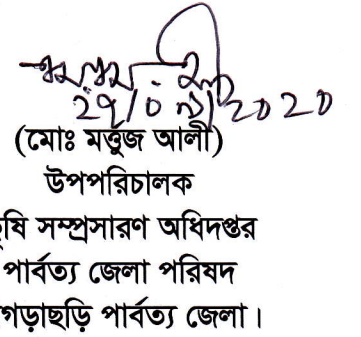 (মোঃ মত্তুজ আলী)
উপপরিচালক
ষি সম্প্রসারণ অধিদপ্তর
পার্বত্য জেলা পরিষদ
গড়াছড়ি পার্বত্য জেলা।